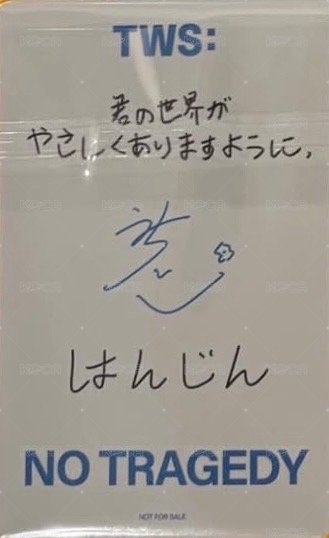 TWS:
君の世界が
やさしくありますように。
はんじん
NO TRAGEDY
NOT FOR SALE